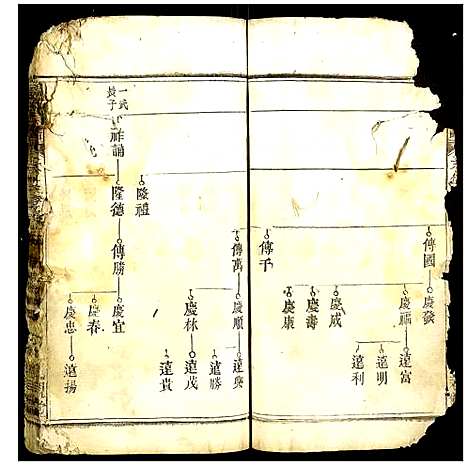 傳國
慶發
慶福
遠富
遠明
遠利
慶咸
慶壽
慶康
傳千
傳萬
慶順
遠興
遠勝
慶林
遠茂
遠貴
隆禮
一式
長子
祥誦
隆德
傳勝
慶宜
慶春
慶忠
遠揚